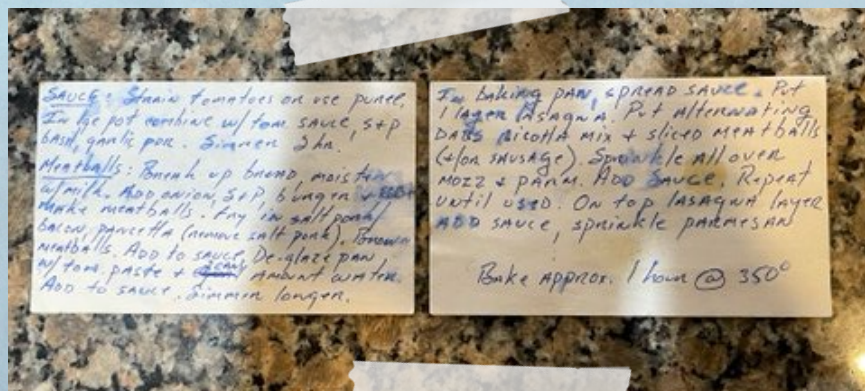 SAUCE: Strain tomatoes or use puree,
In lge pot combine w/ tom sauce, S+P
basil, garlic por. Simmer 2 hr.
Meatballs: Break up bread moisten
w/ milk. Add onion, S+P, burger + egg
make meatballs. Fry in salt pork/
bacon, pancetta (remove salt pork). Brown
meatballs. Add to sauce. De-glaze pan
w/ tom. paste + amount water.
Add to sauce. Simmer longer.
In baking pan, spread sauce. Put
1 layer lasagna. Put alternating
dabs ricotta mix + sliced meatballs
(+/or sausage). Sprinkle all over
mozz + parm. Add sauce. Repeat
until used. On top lasagna layer
add sauce, sprinkle parmesan
Bake approx. 1 hour @ 350°